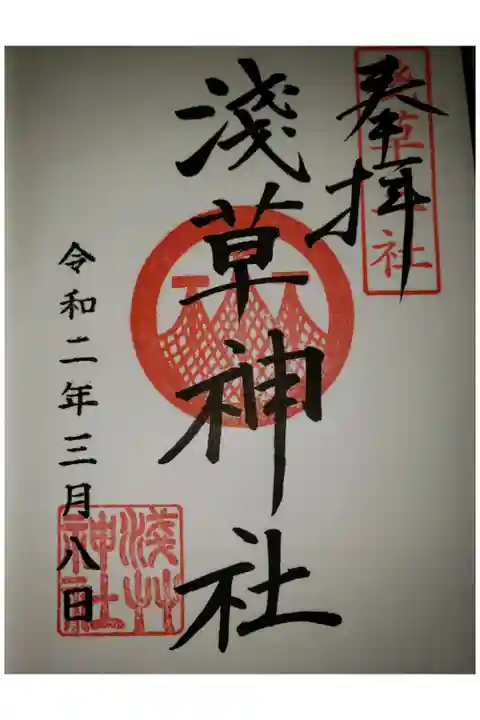 奉拝
淺草神社
淺草神社
令和二年三月八日
淺草神社